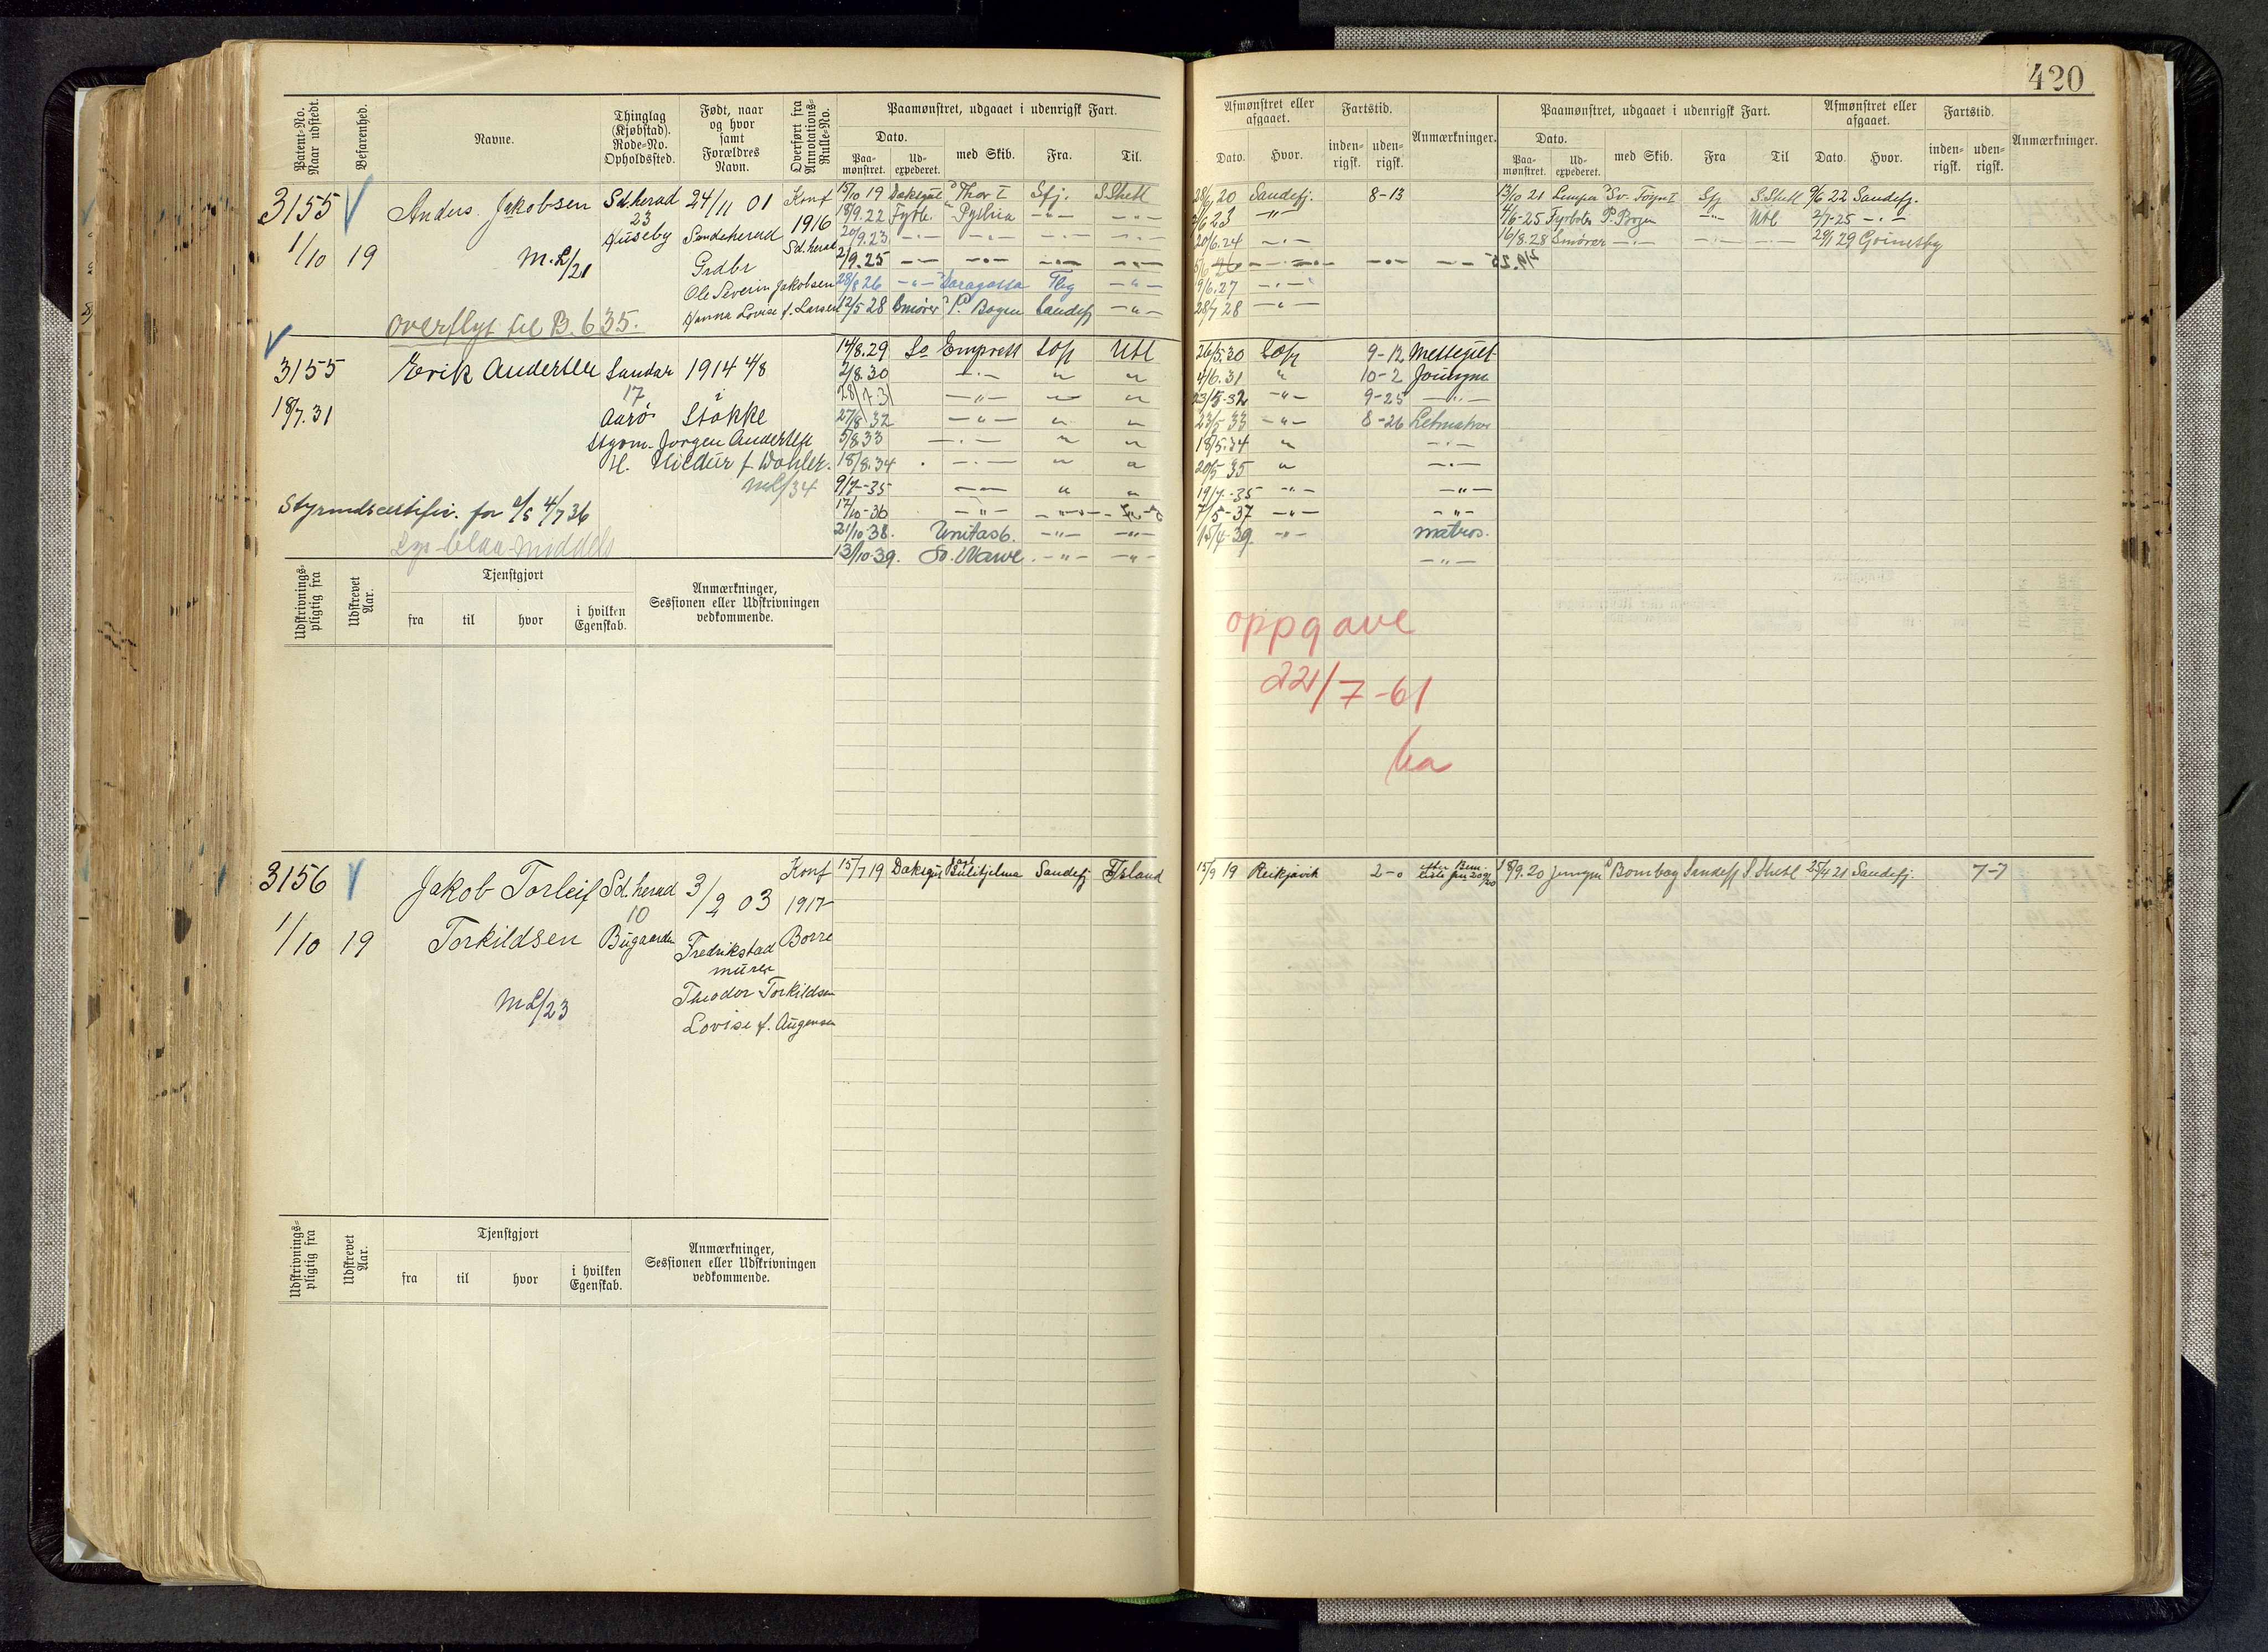 420
Patent-No. Naar udstedt.
Befarenhed.
Navne.
Thinglag (Kjøbstad). Rode-No. Opholdssted.
Født, naar og hvor samt Forældres Navn.
Overført fra Annotations-Rulle-No.
Paamønstret, udgaaet i udenrigsk Fart.
Dato.
Paa-mønstret.
Ud-expederet.
med Skib.
Fra.
Til.
Afmønstret eller afgaaet.
Dato.
Hvor.
Fartstid.
inden-rigsk.
uden-rigsk.
Anmærkninger.
Paamønstret, udgaaet i udenrigsk Fart.
Dato.
Paa-mønstret.
Ud-expederet.
med Skib.
Fra
Til
Afmønstret eller afgaaet.
Dato.
Hvor.
Fartstid.
inden-rigsk.
uden-rigsk.
Anmærkninger.
3155
1/10 19
Anders Jakobsen
M.L/21
overflyt til B.635.
Sd.herad
23
Huseby
24/11 01
Sandeherad
Grdbr
Ole Severin Jakobsen
Hanna Lovise f. Larsen
Konf
1916
Sd.herad
15/10 19 Daksgut Thor I Sfj. S.Shetl
18/9.22 Fyrb. -"- -"-
20/9.23 -"- -"- -"- -"-
2/9.25 -"- -"- -"- -"-
28/8 26 -"- Saragossa Tbg -"-
12/5 28 Smører P. Bogen Sandefj -"-
28/6 20 Sandefj. 8-13
2/6 23 -"-
20/6.24 -"-
9/6.27 -"-
28/7 28 -"-
13/10 21 Lemper Sv. Foyn I Sfj S.Shetl 9/6 22 Sandefj.
4/6-25 Fyrbøter P. Bogen -"- Utl 2/7-25 -"-
16/8.28 Smører -"- -"- -"- 29/1 29 Grimsby
3155
18/7.31
Erik Andersen
Sandar
17
Aarø
1914 4/8
i
Stokke
Styrm. Jørgen Andersen
H. Hildur f. Wøhler.
ML/34
Styrmdscertifi. for 4/7 36
Lys blaa middels
14/8.29 So Empress Sofj Utl
2/8.30 -"- " "
28/7 31 -"- " "
27/8 32 -"- " "
5/8 33 -"- " "
18/8.34 -"- " "
9/7-35 -"- " "
17/10-36 -"- -"- -"-
21/10-38. Unitas 6. -"- -"-
13/10-39. -"- -"-
26/5.30 Sofj 9-12 Messegut
4/6.31 " 10-2 Jungm
23/5-32 -"- 9-25 -"-
23/5 33 -"- 8-26 Letmatros
18/5.34 " -"-
20/5 35 " -"-
19/7-35 -"- -"-
7/5-37 -"- -"-
15/4-39 -"- matros.
-"-
oppgave
22/7-61
Udskrivnings-pligtig fra
Udskrevet Aar.
Tjenstgjort
fra
til
hvor
i hvilken Egenskab.
Anmærkninger, Sessionen eller Udskrivningen vedkommende.
3156
1/10 19
Jakob Torleif
Torkildsen
ML/23
Sd.herad
10
Bugaarden
3/2 03
Fredrikstad
murer
Theodor Torkildsen
Lovise f. Augensen
Konf
1917
Borre
15/7 19 Daksgut Sulitjelma Sandefj Island
15/9 19 Reikjavik 2-0
18/9.20 Jungm Bombay Sandefj S Shetl 25/4 21 Sandefj. 7-7
Udskrivnings-pligtig fra
Udskrevet Aar.
Tjenstgjort
fra
til
hvor
i hvilken Egenskab.
Anmærkninger, Sessionen eller Udskrivningen vedkommende.